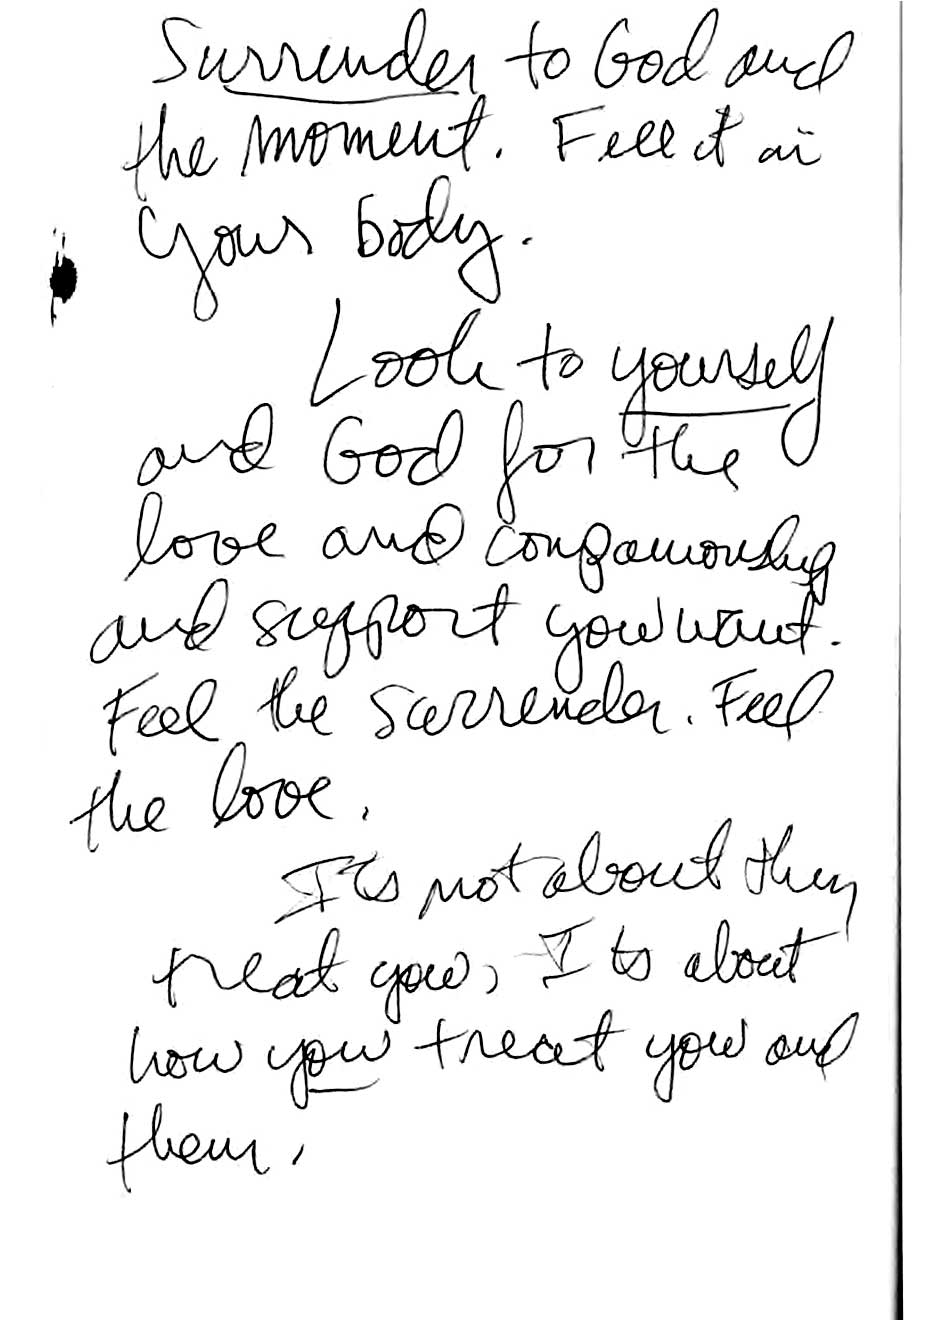 Surrender to God and
the moment. Feel it in
your body.
Look to yourself
and God for the
love and companionship
and support you want.
Feel the surrender. Feel
the love.
It's not about they
treat you, Its about
how you treat you and
them.